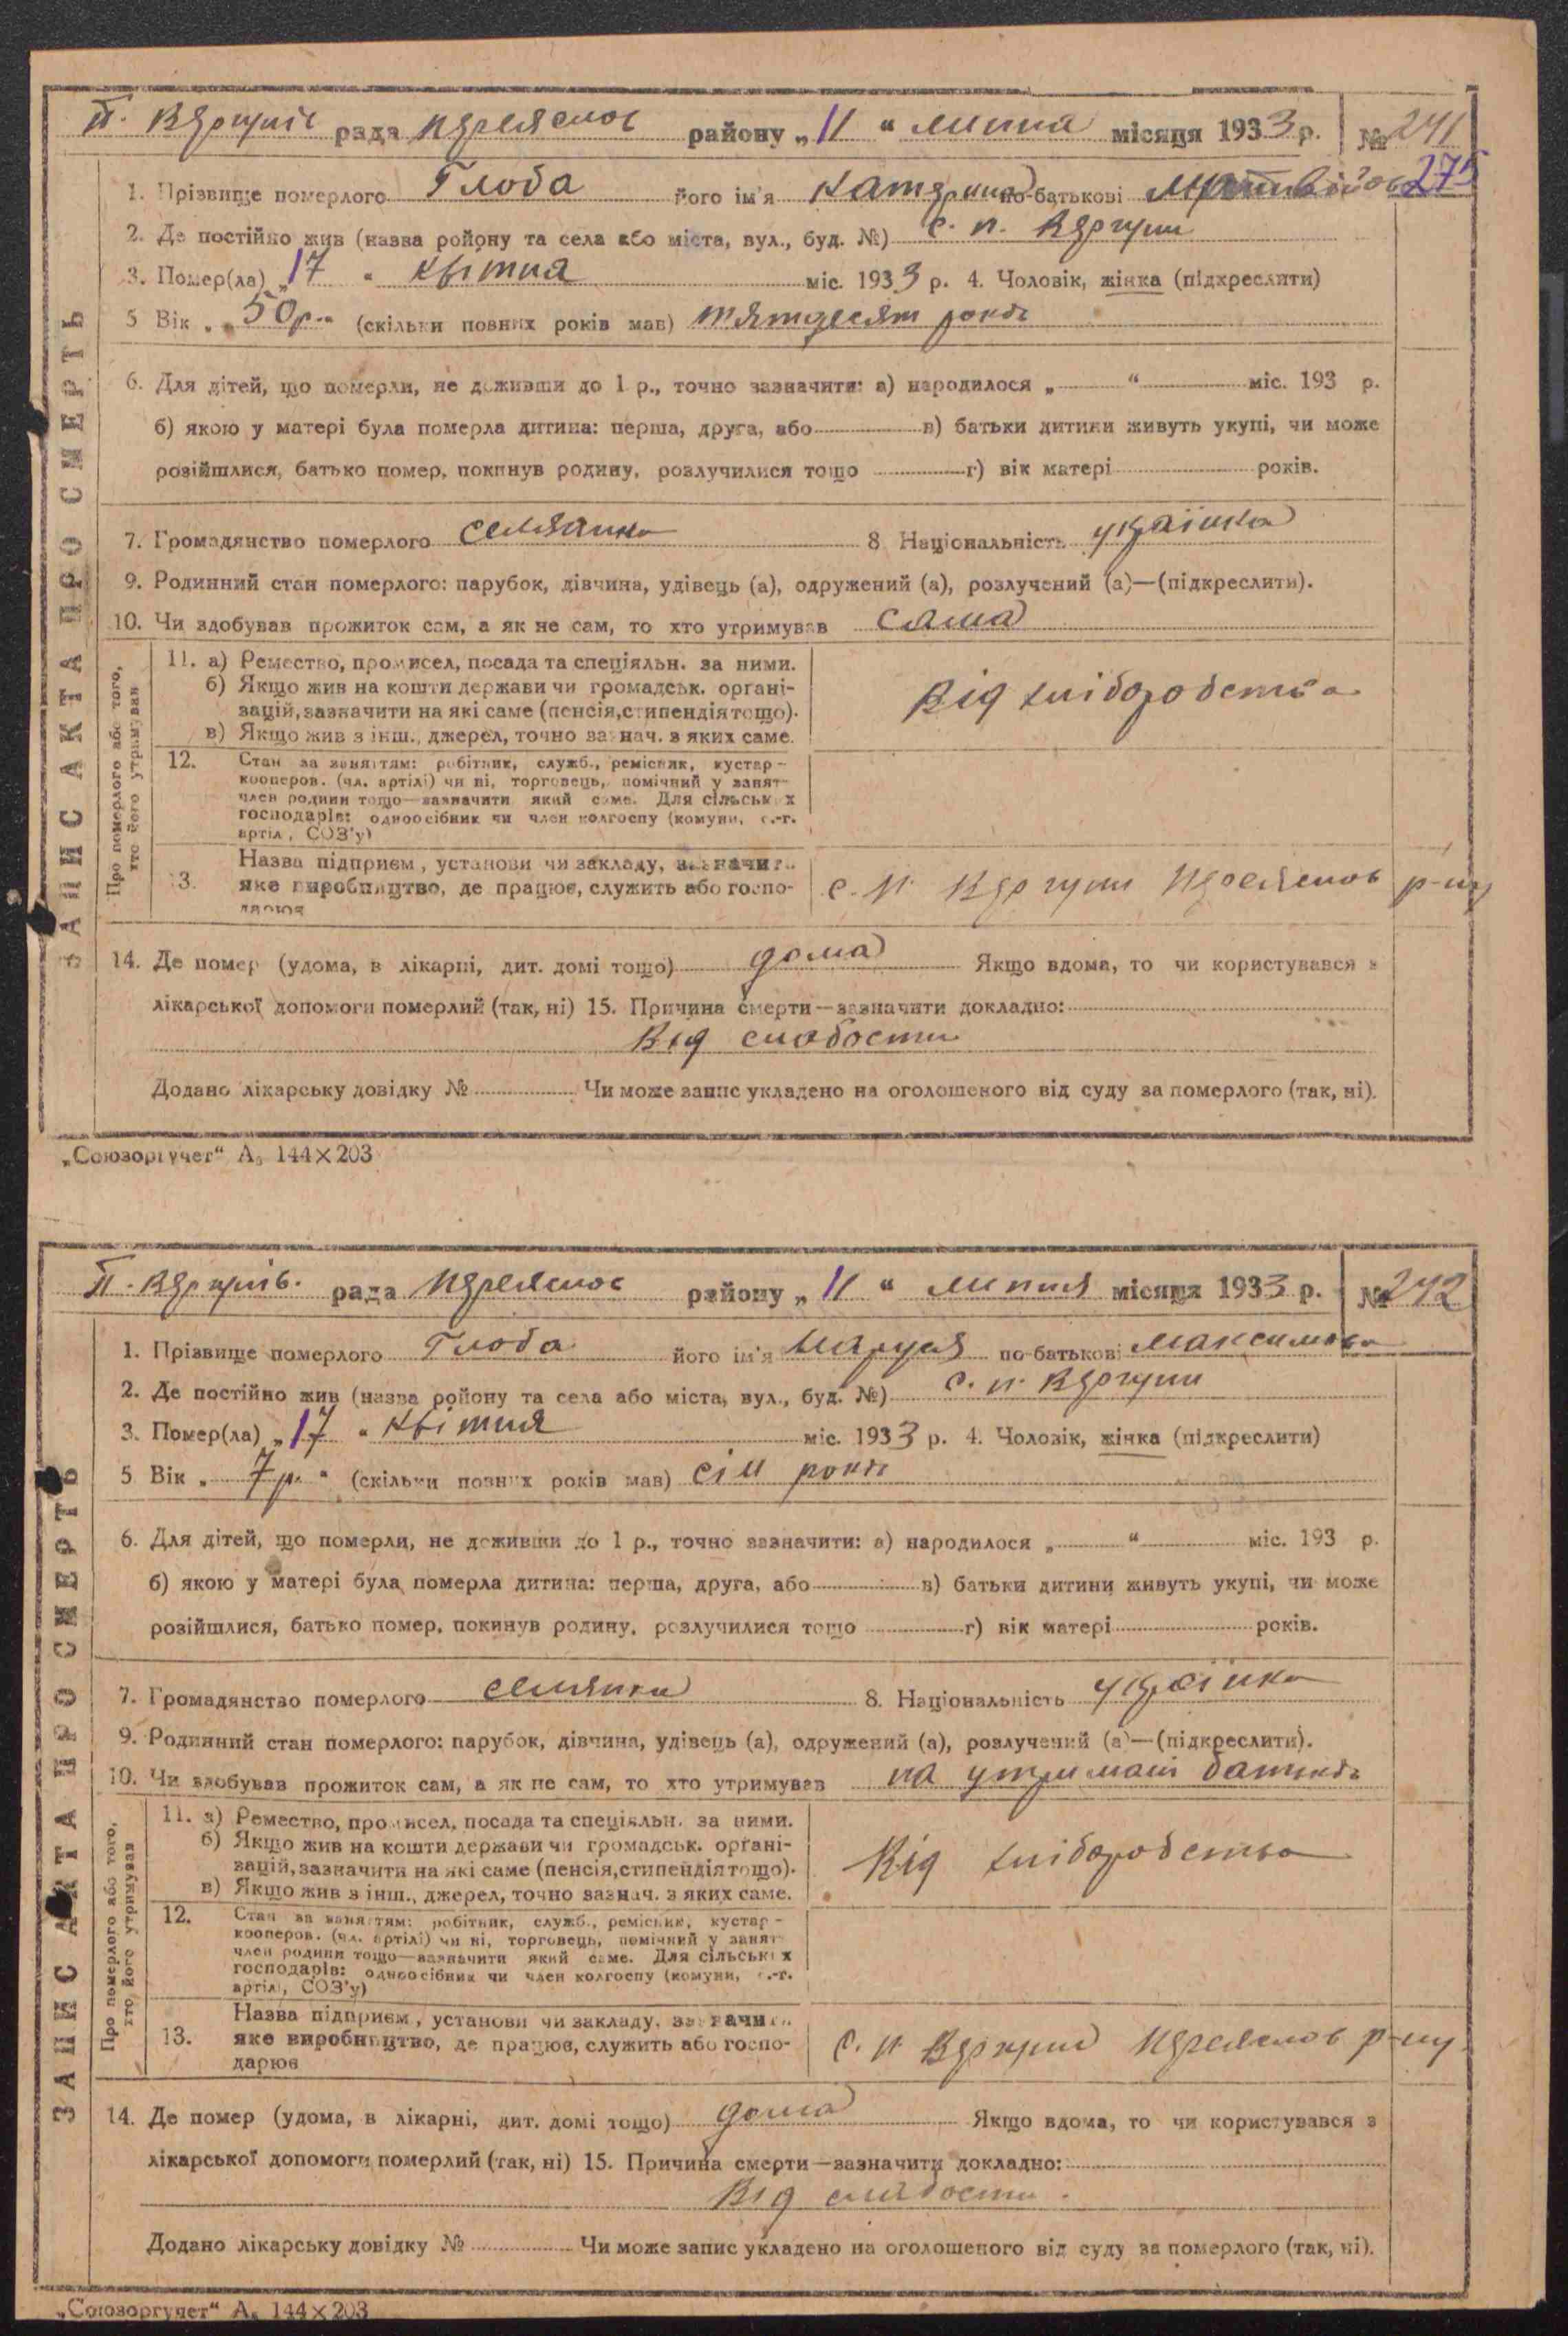 П. Вергунів рада Переяслов району „11“ липня місяця 1933 р. № 241
275
1. Прізвище померлого Глоба його ім'я Катерина по-батькові Матвійов
2. Де постійно жив (назва ройону та села або міста, вул., буд. №) с. п. Вергуни
3. Помер(ла) „17 “ квітня міс. 1933 р. 4. Чоловік, жінка (підкреслити)
5 Вік „ 50 р. “ (скільки повних років мав) пятдесят років
6. Для дітей, що померли, не доживши до 1 р., точно зазначити: а) народилося „ “ міс. 193 р.
б) якою у матері була померла дитина: перша, друга, або в) батьки дитини живуть укупі, чи може
розійшлися, батько помер, покинув родину, розлучилися тощо г) вік матері років.
7. Громадянство померлого селянка 8 Національність українка
9. Родинний стан померлого: парубок, дівчина, удівець (а), одружений (а), розлучений (а)—(підкреслити).
10. Чи здобував прожиток сам, а як не сам, то хто утримував сама
11. а) Ремество, промисел, посада та спеціяльн. за ними.
б) Якщо жив на кошти держави чи громадськ. органі-
зацій, зазначити на які саме (пенсія, стипендія тощо).
в) Якщо жив з інш., джерел, точно зазнач. з яких саме.
Від хліборобства
12. Стан за заняттям: робітник, служб., ремісник, кустар-
кооперов. (чл. артілі) чи ні, торговець, помічний у занят-
член родини тощо—зазначити який саме. Для сільських
господарів: одноосібник чи член колгоспу (комуни, с.-г.
артіл, СОЗ'у)
13. Назва підприєм, установи чи закладу, зазначити
яке виробництво, де працює, служить або госпо-
дарює
с. п. Вергуни Переяслов р-ну
14. Де помер (удома, в лікарні, дит. домі тощо) дома Якщо вдома, то чи користувався з
лікарської допомоги померлий (так, ні) 15. Причина смерти—зазначити докладно:
Від слабости
Додано лікарську довідку № Чи може запис укладено на оголошеного від суду за померлого (так, ні).
„Союзоргучет“ А₅ 144×203
ЗАПИС АКТА ПРО СМЕРТЬ
Про померлого або того,
хто його утримував
П. Вергунів. рада Переяслов району „11“ липня місяця 1933 р. № 242
1. Прізвище померлого Глоба його ім'я Маруся по-батькові Максимовна
2. Де постійно жив (назва ройону та села або міста, вул., буд. №) с. п. Вергуни
3. Помер(ла) „17 “ квітня міс. 1933 р. 4. Чоловік, жінка (підкреслити)
5 Вік „ 7 р. “ (скільки повних років мав) сім років
6. Для дітей, що померли, не доживши до 1 р., точно зазначити: а) народилося „ “ міс. 193 р.
б) якою у матері була померла дитина: перша, друга, або в) батьки дитини живуть укупі, чи може
розійшлися, батько помер, покинув родину, розлучилися тощо г) вік матері років.
7. Громадянство померлого селянка 8. Національність українка
9. Родинний стан померлого: парубок, дівчина, удівець (а), одружений (а), розлучений (а)—(підкреслити).
10. Чи здобував прожиток сам, а як не сам, то хто утримував на утримані батьків
11. а) Ремество, промисел, посада та спеціяльн. за ними.
б) Якщо жив на кошти держави чи громадськ. органі-
зацій, зазначити на які саме (пенсія, стипендія тощо).
в) Якщо жив з інш., джерел, точно зазнач. з яких саме.
Від хліборобства
12. Стан за заняттям: робітник, служб., ремісник, кустар-
кооперов. (чл. артілі) чи ні, торговець, помічний у занят-
член родини тощо—зазначити який саме. Для сільських
господарів: одноосібник чи член колгоспу (комуни, с.-г.
артіл, СОЗ'у)
13. Назва підприєм, установи чи закладу, зазначити
яке виробництво, де працює, служить або госпо-
дарює
с. п. Вергуни Переяслов р-ну
14. Де помер (удома, в лікарні, дит. домі тощо) дома Якщо вдома, то чи користувався з
лікарської допомоги померлий (так, ні) 15. Причина смерти—зазначити докладно:
Від слабости.
Додано лікарську довідку № Чи може запис укладено на оголошеного від суду за померлого (так, ні).
„Союзоргучет“ А₅ 144×203
ЗАПИС АКТА ПРО СМЕРТЬ
Про померлого або того,
хто його утримував